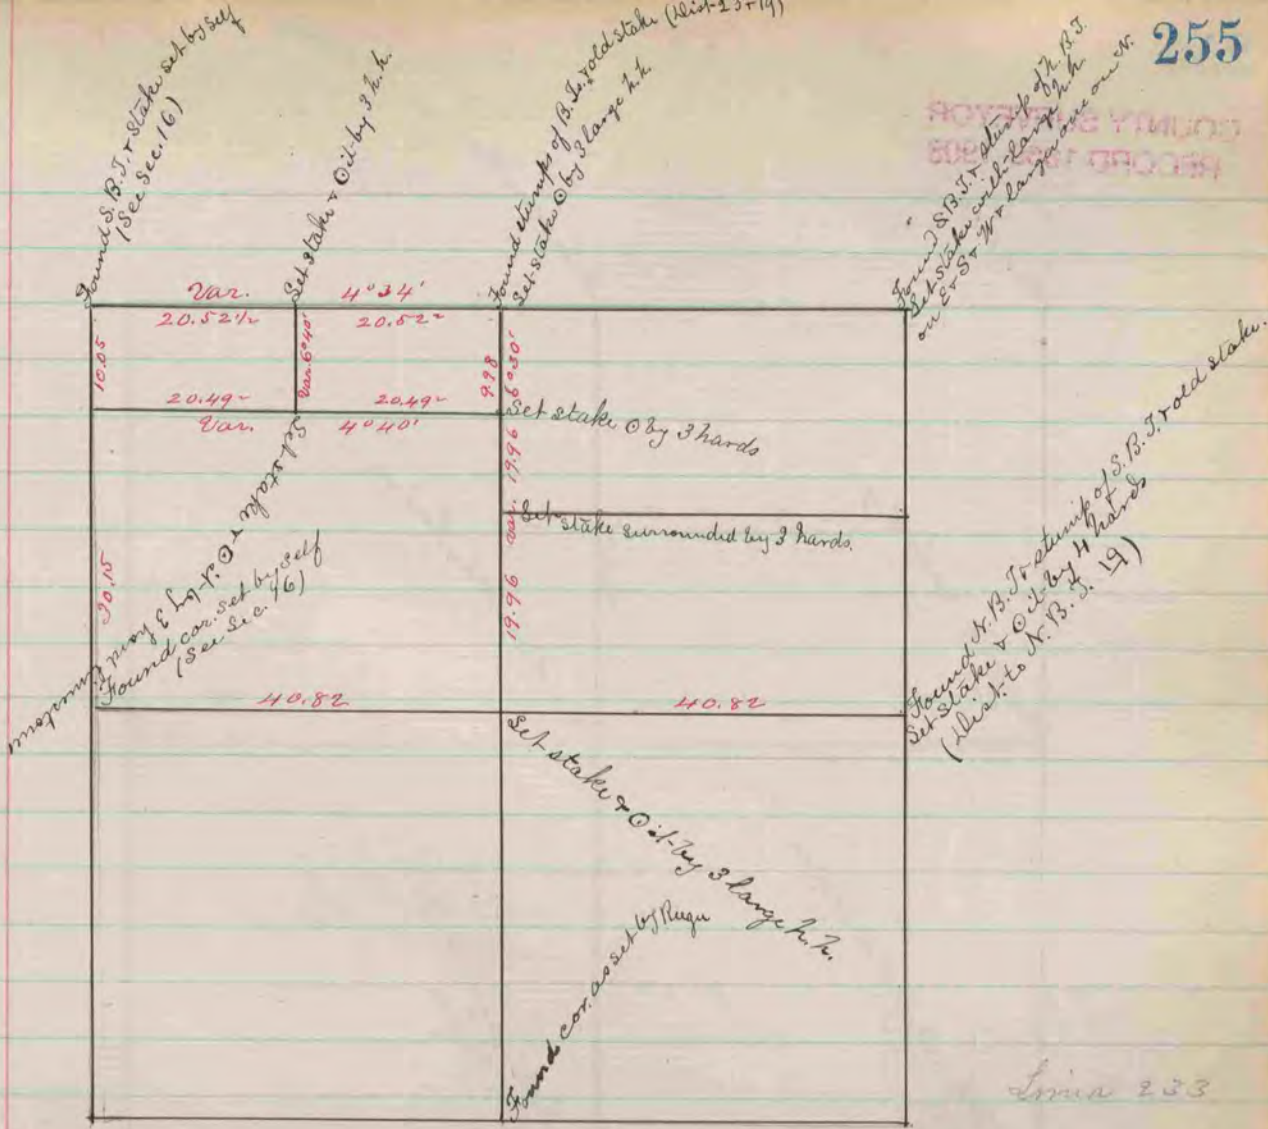 255
COUNTY SURVEYOR
RECORD
Found S.B.T. & Stake set by self
(See Sec. 16)
Set stake & ⊙ it by 3 h.h.
Found stumps of B.Ts. & old stake (Dist 23 & 19)
Set stake ⊙ by 3 large h.h.
Found S.B.T. & stump of N.B.T.
Set stake with large h.h.
on E & S & W & large one on N.
Var. 4° 34'
20.52½ 20.52
10.05
Var. 6° 40'
9.98
6° 30'
20.49 20.49
Var. 4° 40'
Set stake ⊙ by 3 hards
Set stake & ⊙ it by 3 hard
19.96
Var.
Set stake surrounded by 3 hards.
19.96
20.15
Found cor. set by self
(See Sec. 16)
40.82 40.82
Found N.B.T. & stump of S.B.T. & old stake.
Set Stake & ⊙ it by 4 hards
(Dist. to N.B.T. 19)
Set stake & ⊙ it by 3 large h.h.
Found cor. as set by
233